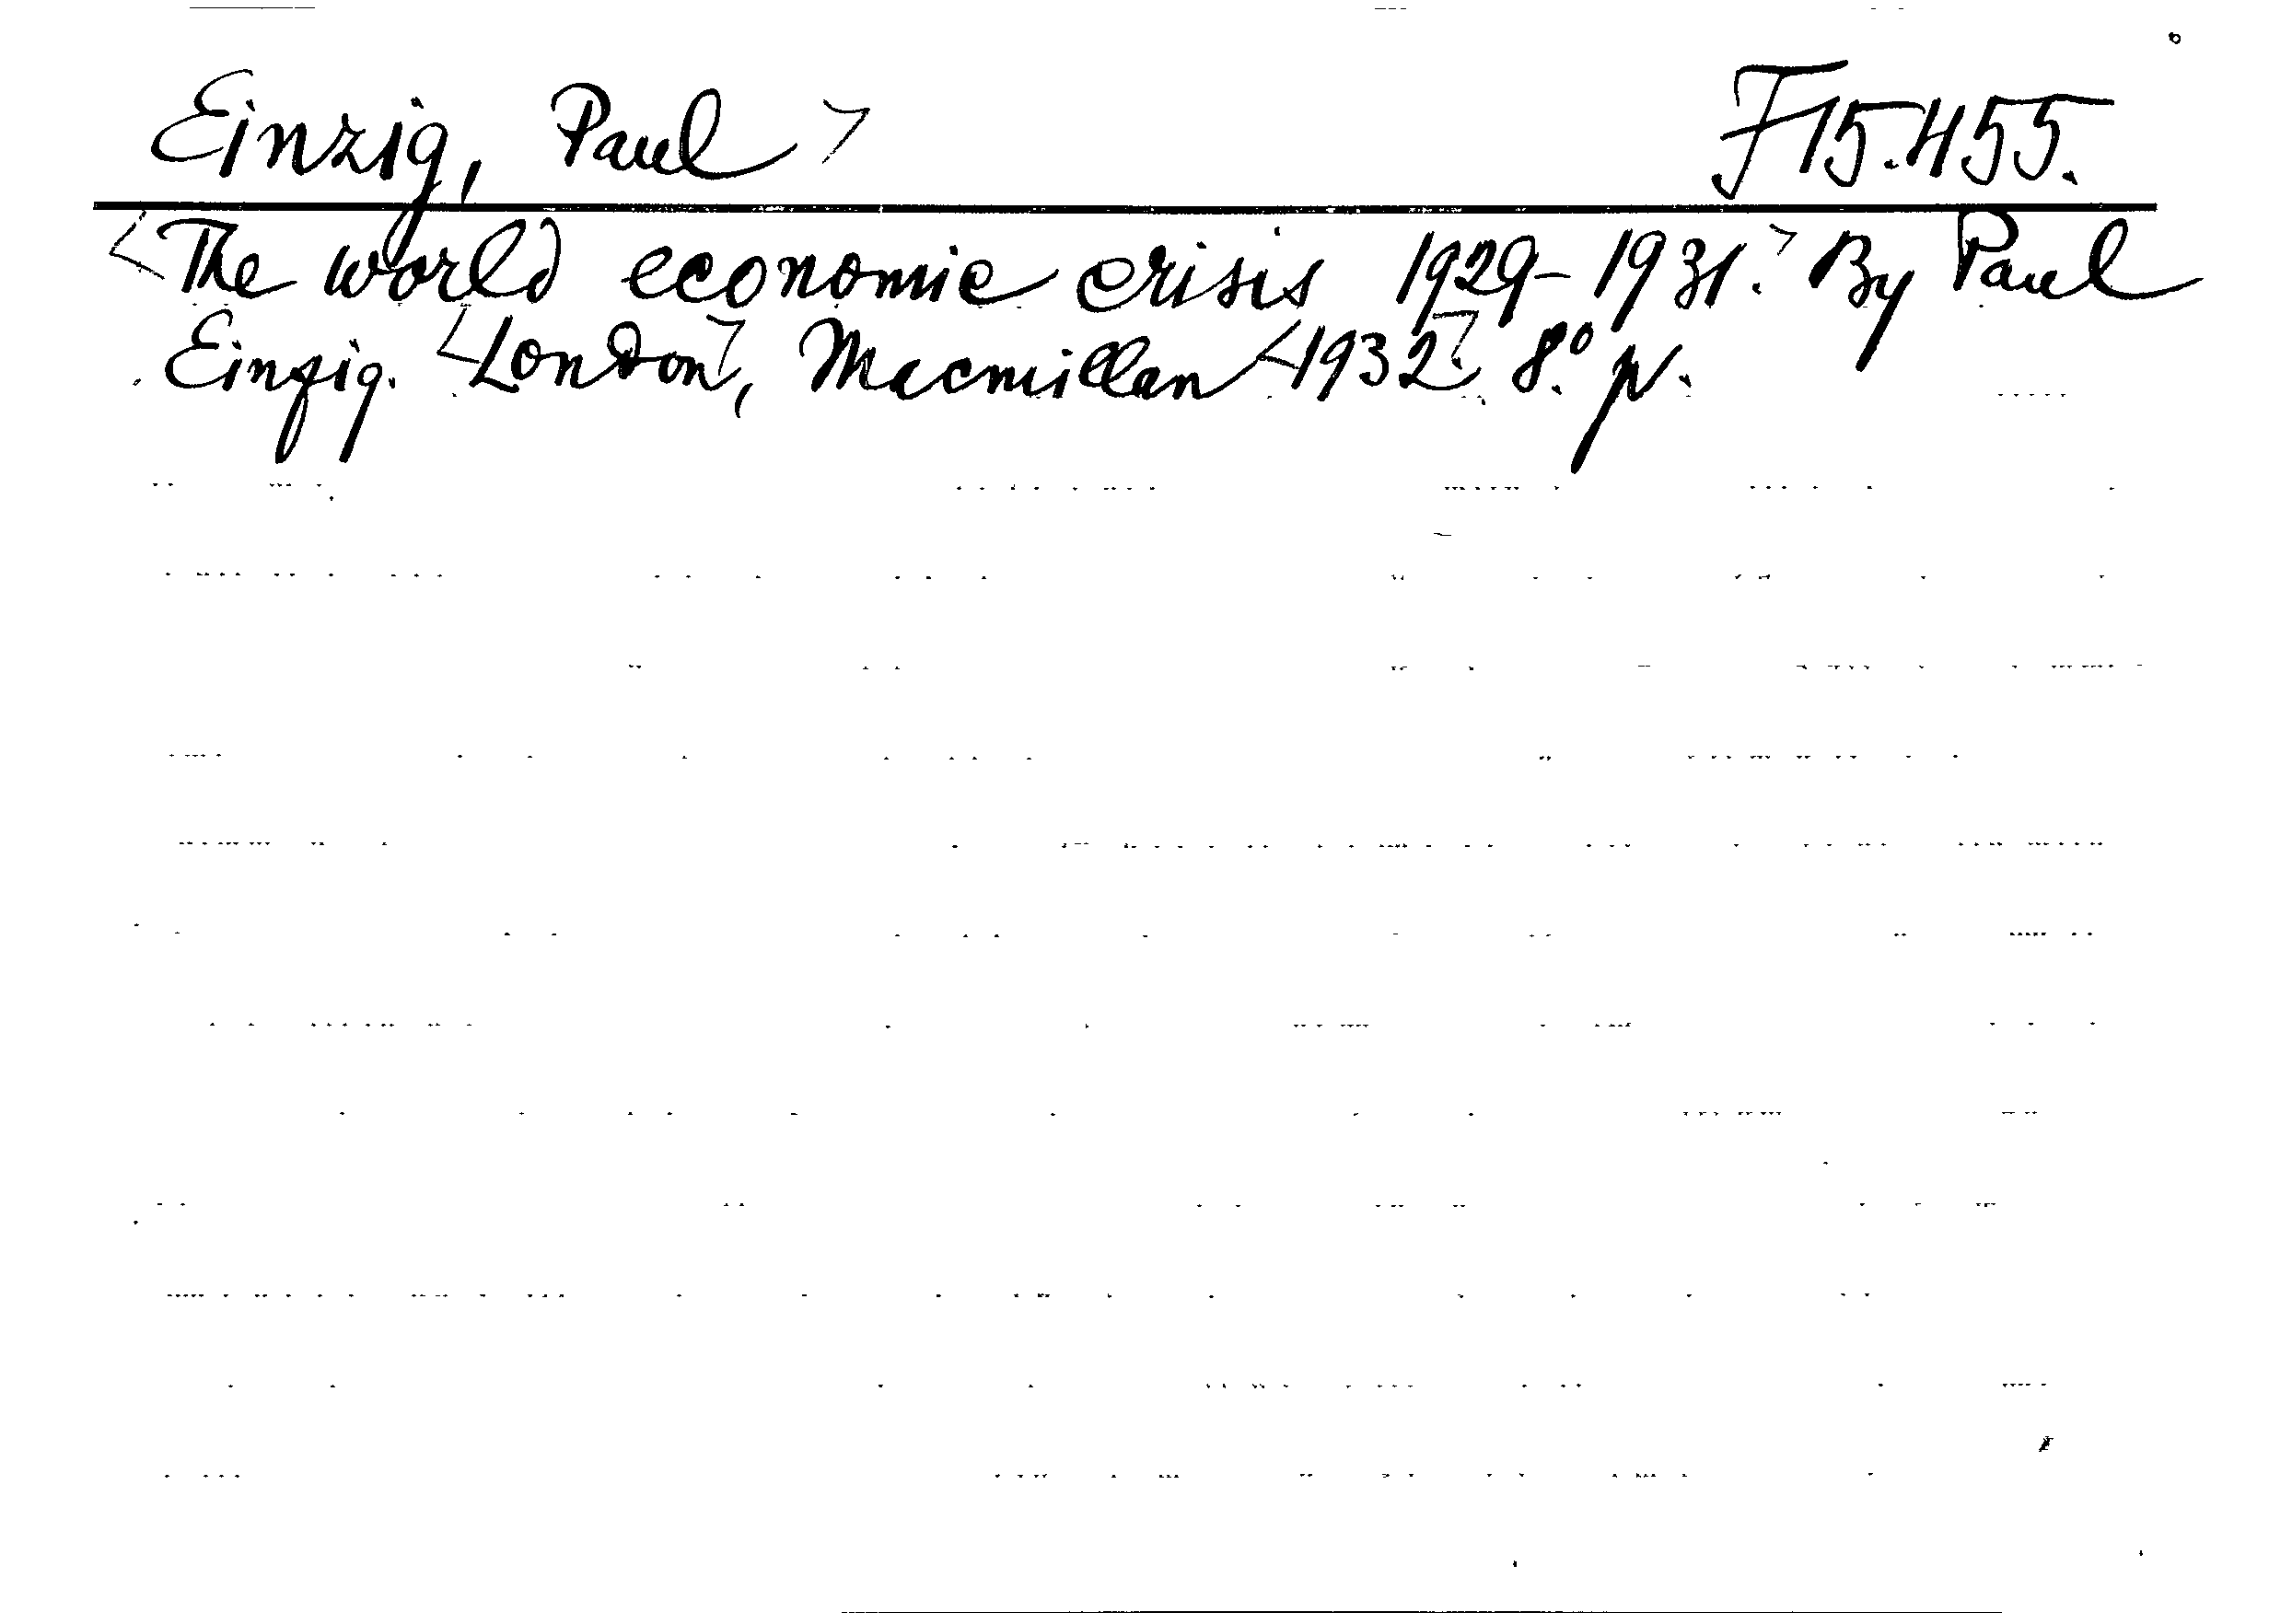 Einzig, Paul > F 15.455.
<The world economic crisis 1929-1931.> By Paul
Einzig. <London>, Macmillan <1932.> 8.° p.